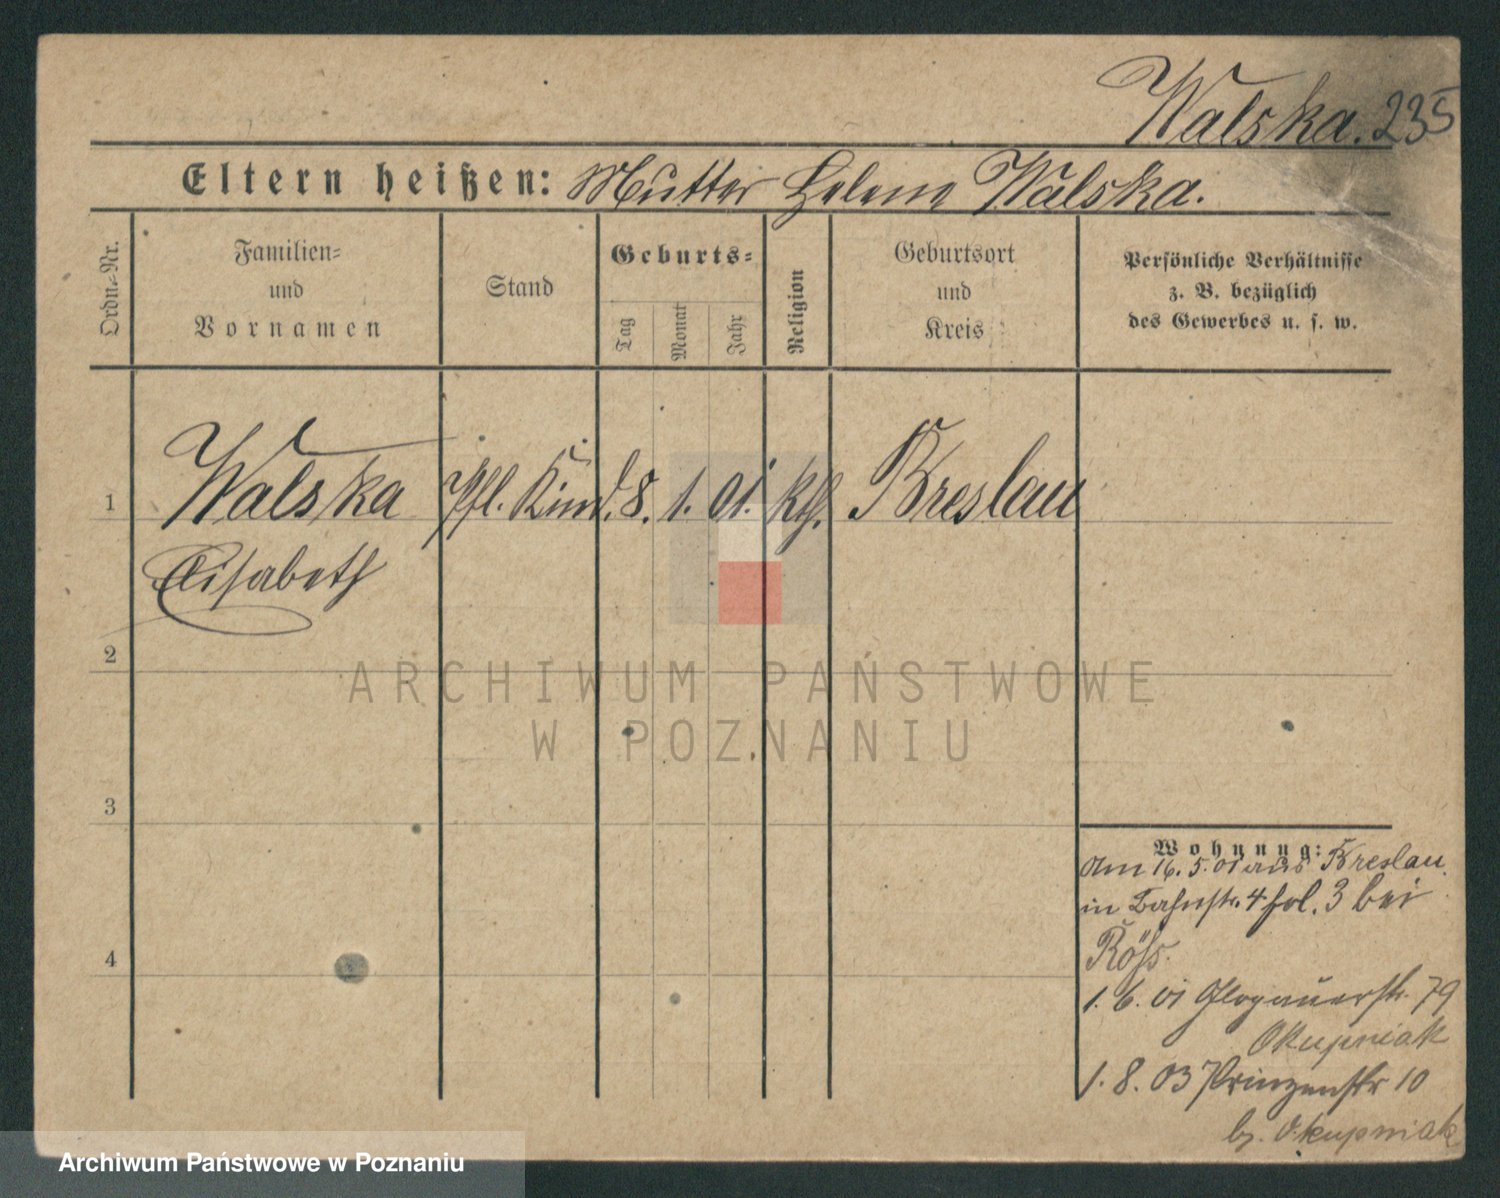 Walska. 235
Eltern heißen: Mutter Helene Walska.
Ordn.-Nr.
Familien-
und
Vornamen
Stand
Geburts-
Tag
Monat
Jahr
Religion
Geburtsort
und
Kreis
Persönliche Verhältnisse
z. B. bezüglich
des Gewerbes u. s. w.
1 Walska Pfl. Kind. 8. 1. 01. kth. Breslau
Elisabeth
2
ARCHIWUM PAŃSTWOWE
W POZNANIU
3
Wohnung:
Am 16. 5. 01 aus Breslau.
in Bahnstr. 4 hol. 3 bei
4
1. 6. 01 Glogauerstr. 79
Okupniak
1. 8. 03 Prinzenstr 10
b. Okupniak
Archiwum Państwowe w Poznaniu